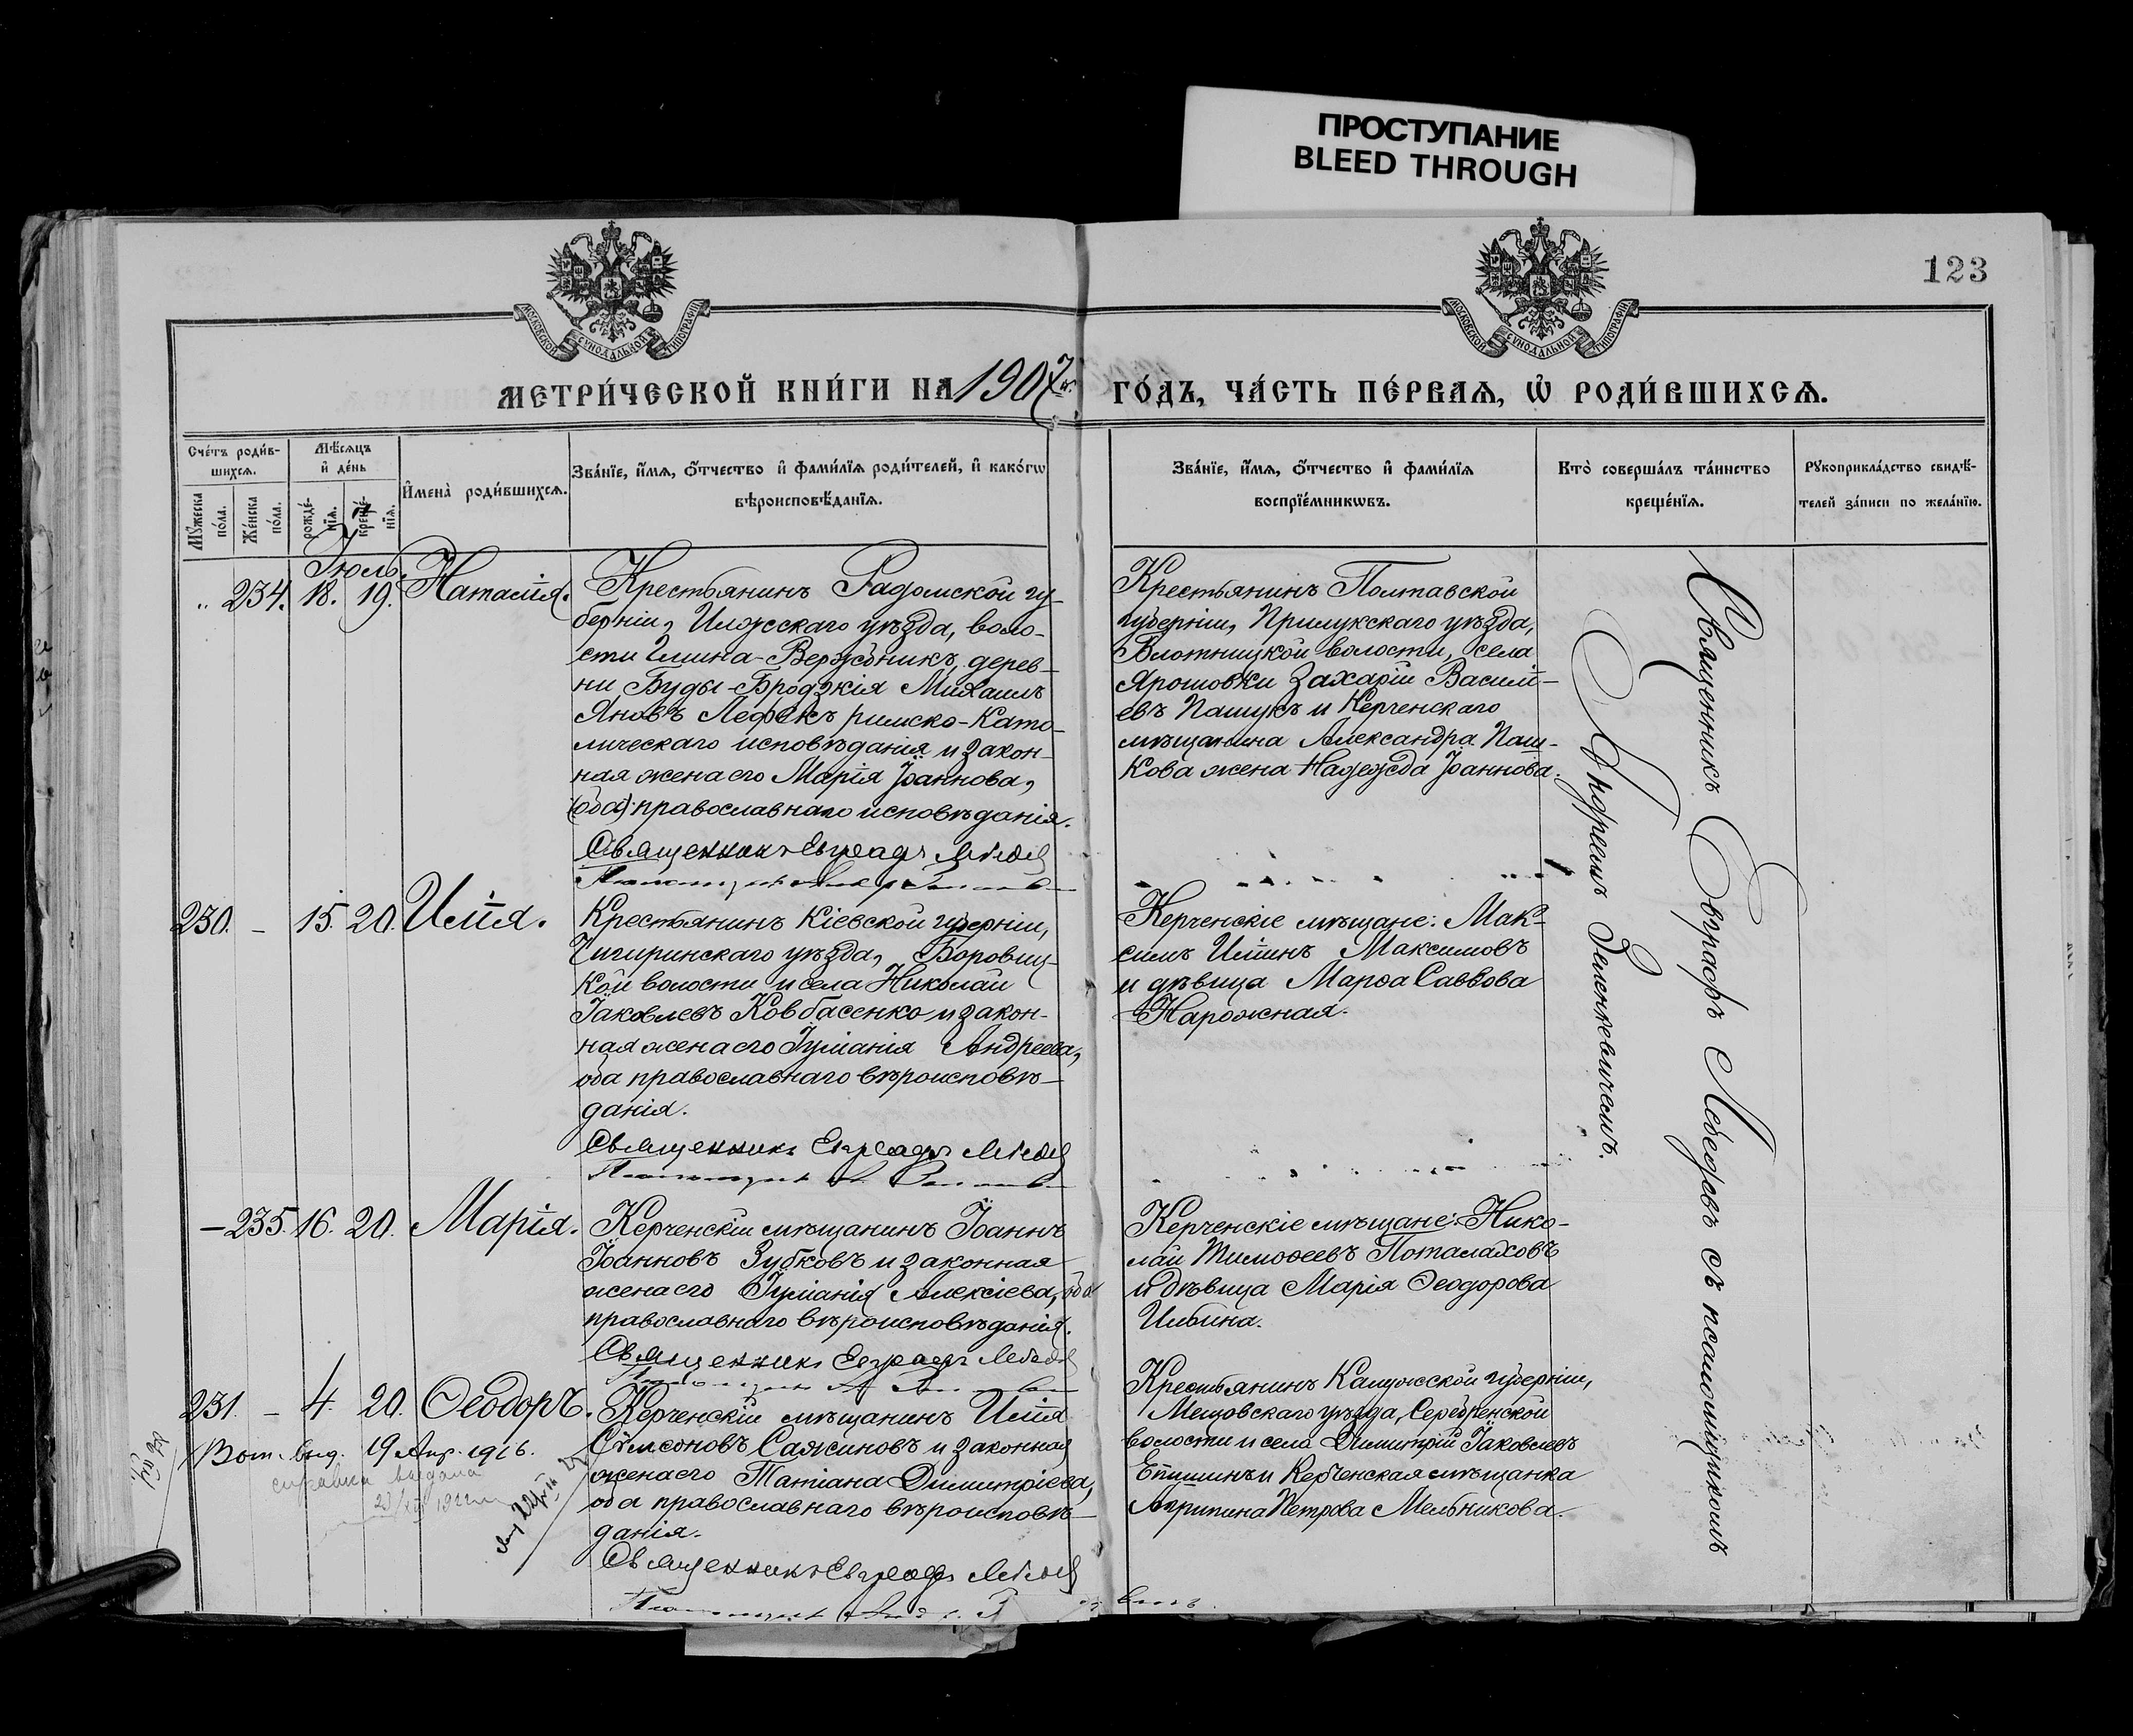 ПРОСТУПАНИЕ
BLEED THROUGH
123
МОСКОВСКОЙ СѴНОДАЛЬНОЙ ТИПОГРАФІИ
МОСКОВСКОЙ СѴНОДАЛЬНОЙ ТИПОГРАФІИ
МЕТРИ́ЧЕСКОЙ КНИ́ГИ НА 1907 ГО́ДЪ, ЧА́СТЬ ПЕ́РВАѦ, Ѡ҆ РОДИ́ВШИХСѦ.
Сче́тъ роди́в-
шихсѧ.
Мꙋ́жеска
по́ла.
Же́нска
по́ла.
Мѣ́сѧцъ
и҆ де́нь
рожде́-
нїѧ.
креще́-
нїѧ.
И҆мена̀ роди́вшихсѧ.
Зва́нїе, и҆́мѧ, ѻ҆́тчество и҆ фами́лїѧ роди́телей, и҆ како́гѡ
вѣроисповѣ́данїѧ.
Зва́нїе, и҆́мѧ, ѻ҆́тчество и҆ фами́лїѧ
воспрїе́мникѡвъ.
Кто̀ соверша́лъ та́инство
креще́нїѧ.
Рꙋкоприкла́дство свидѣ́-
телей за́писи по жела́нїю.
Іюль.
„ 234. 18. 19. Наталія.
Крестьянинъ Радомской гу-
берніи, Илжсскаго уѣзда, воло-
сти Гмина-Вержбникъ, дерев-
ни Буды-Бродзкія Михаилъ
Яновъ Лефекъ римско-като-
лическаго исповѣданія и закон-
ная жена его Марія Іоаннова,
(оба) православнаго исповѣданія.
Священникъ Евграфъ Лебедев
Крестьянинъ Полтавской
губерніи, Прилукскаго уѣзда,
Блотницкой волости, села
Ярошовки Захарій Василі-
евъ Пащукъ и Керченскаго
мѣщанина Александра Паш-
кова жена Надежда Іоаннова.
Священникъ Евграфъ Лебедевъ съ псаломщикомъ
Андреемъ Зеленкевичемъ.
230. – 15. 20. Илія.
Крестьянинъ Кіевской губерніи,
Чигиринскаго уѣзда, Боровиц-
кой волости и села Николай
Іаковлевъ Ковбасенко и закон-
ная жена его Іуліанія Андреева,
оба православнаго вѣроисповѣ-
данія.
Священникъ Евграфъ Лебедев
Керченскіе мѣщане: Мак-
симъ Иліинъ Максимовъ
и дѣвица Марѳа Саввова
Нарожная.
– 235. 16. 20. Марія.
Керченскій мѣщанинъ Іоаннъ
Іоанновъ Зубковъ и законная
жена его Іуліанія Алексіева, оба
православнаго вѣроисповѣданія.
Священникъ Евграфъ Лебедев
Керченскіе мѣщане: Нико-
лай Тимоѳеевъ Поталаховъ
и дѣвица Марія Ѳеодорова
Ильина.
231. – 4. 20. Ѳеодоръ.
выд. 19 Апр. 1916.
справка выдана
Керченскій мѣщанинъ Илія
Сѵмеоновъ Сажиновъ и законная
жена его Татіана Димитріева,
оба православнаго вѣроисповѣ-
данія.
Священникъ Евграфъ Лебедев
Крестьянинъ Калужской губерніи,
Мещовскаго уѣзда, Серебренской
волости и села Димитрій Іаковлевъ
Епишинъ и Керченская мѣщанка
Агрипина Петрова Мельникова.